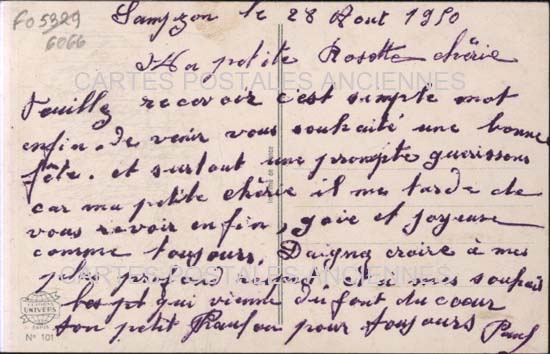 FO 5329
6066
Sampzon le 28 Aout 1950
Ma petite Rosette chérie
CARTES POSTALES ANCIENNES
Veuillez recevoir c'est semple mot
enfin de venir vous souhaité une bonne
fête. et surtout une prompte guerissons
car ma petite chérie il me tarde de
vous revoir enfin, gaie et joyeuse
comme toujours. Daigna croire à mes
plus profond et a mes souhait
CARTES POSTALES ANCIENNES
qui vienne du font du cœur
ton petit pour toujours Paul
UNIVERS
PARIS
N° 101